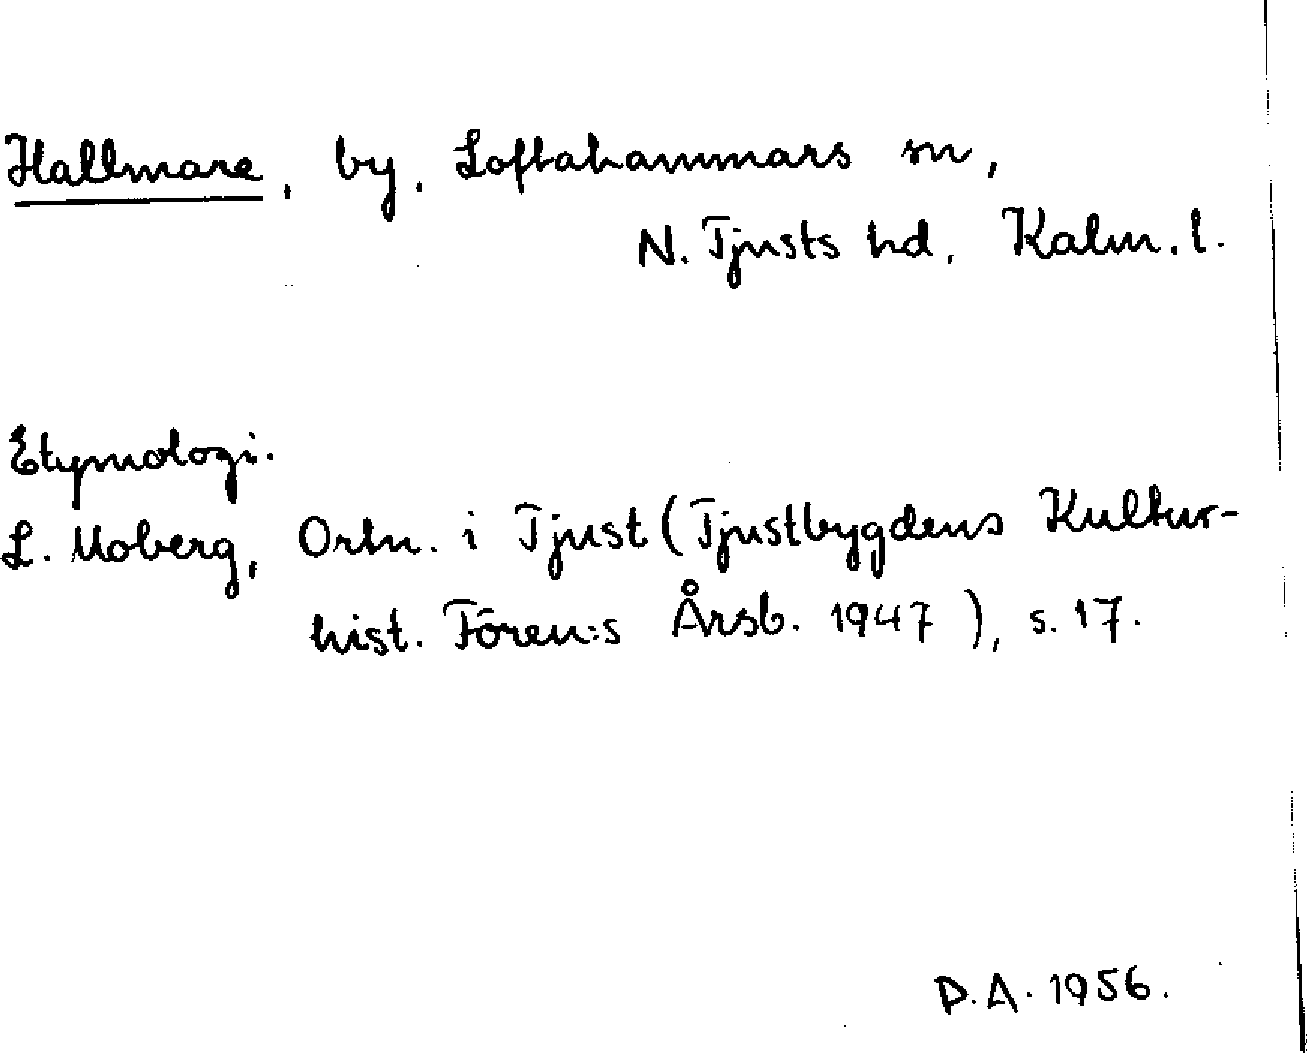 Hallmare, by, Loftahammars sn,
N. Tjusts hd, Kalm. l.
Etymologi.
L. Moberg, Ortn. i Tjust (Tjustbygdens Kultur-
hist. Fören:s Årsb. 1947), s. 17.
D.A. 1956.